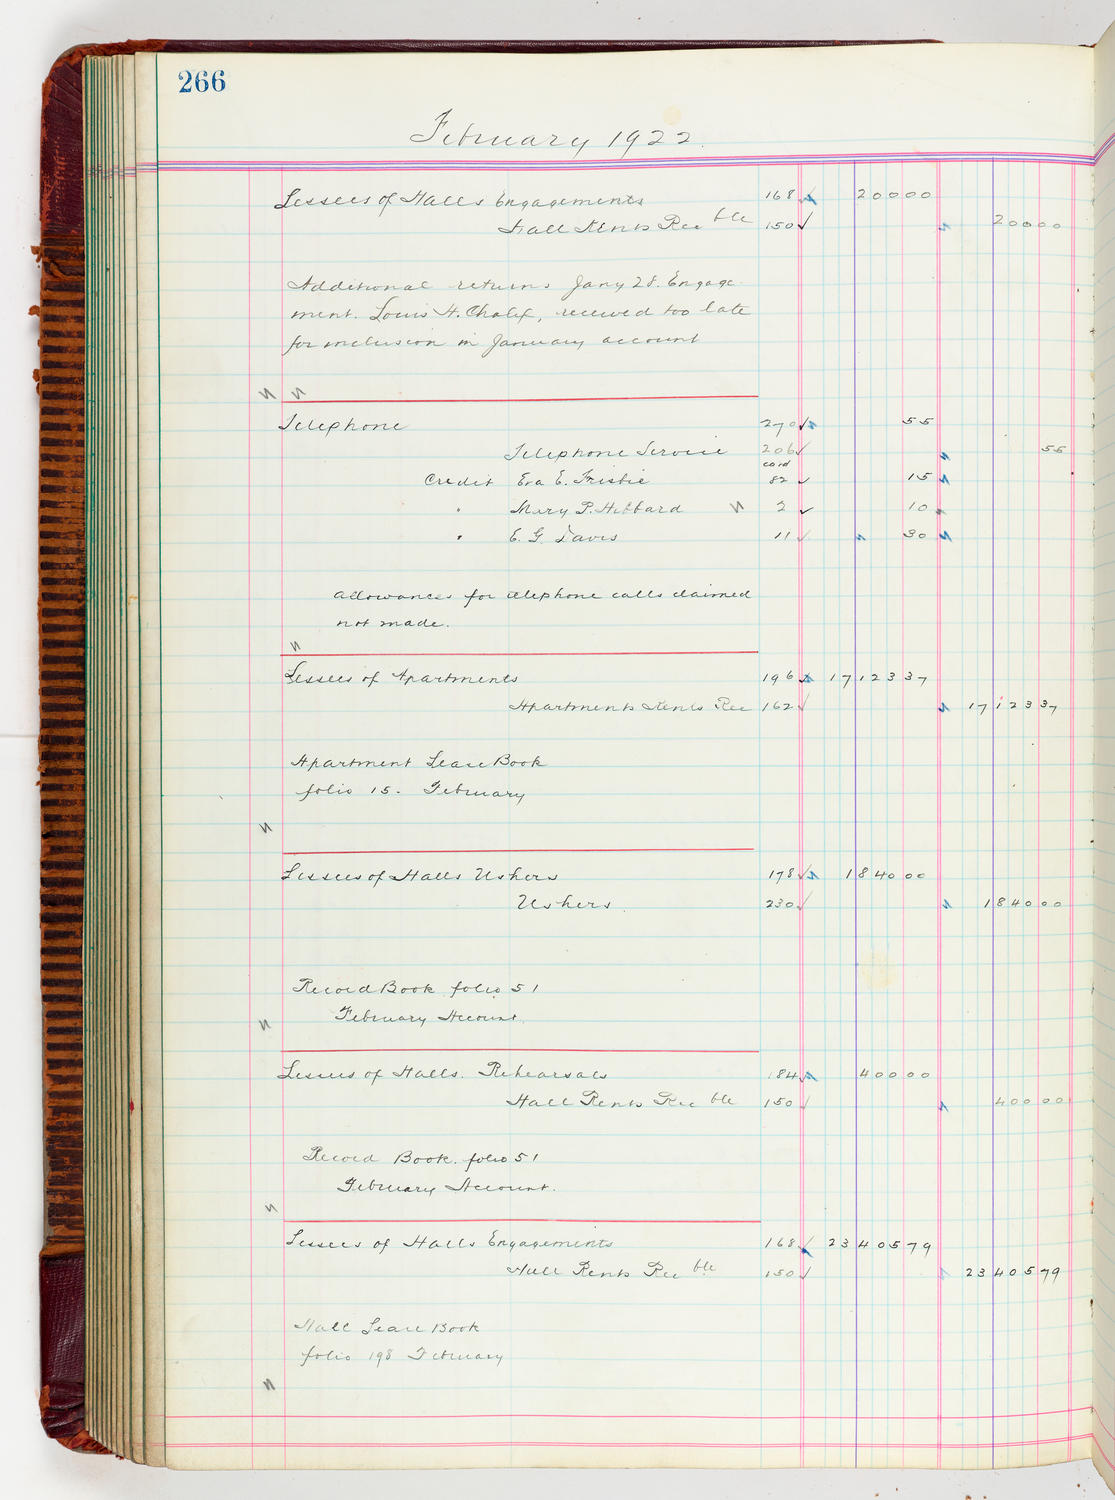 266
February 1922.
Lessees of Halls Engagements 168 20000
Hall Rents Rec ble 150 20000
Additional returns Jany 28. Engage
ment. Louis H. Chalif, received too late
for inclusion in January account
Telephone 270 55
Telephone Service 206 55
card
Credit Eva E. Fristie 82 15
" Mary P. Hibbard 2 10
" E. G. Davis 11 30
allowances for telephone calls claimed
not made.
Lessees of Apartments 196 1712337
Apartments Rents Rec 162 1712337
Apartment Lease Book
folio 15. February
Lessees of Halls Ushers 178 184000
Ushers. 230 184000
Record Book folio 51
February Account.
Lessees of Halls. Rehearsals 184 40000
Hall Rents Rec ble 150 40000
Record Book. folio 51
February Account.
Lessees of Halls Engagements 168 2340579
Hall Rents Rec ble 150 2340579
Hall Lease Book
folio 198 February